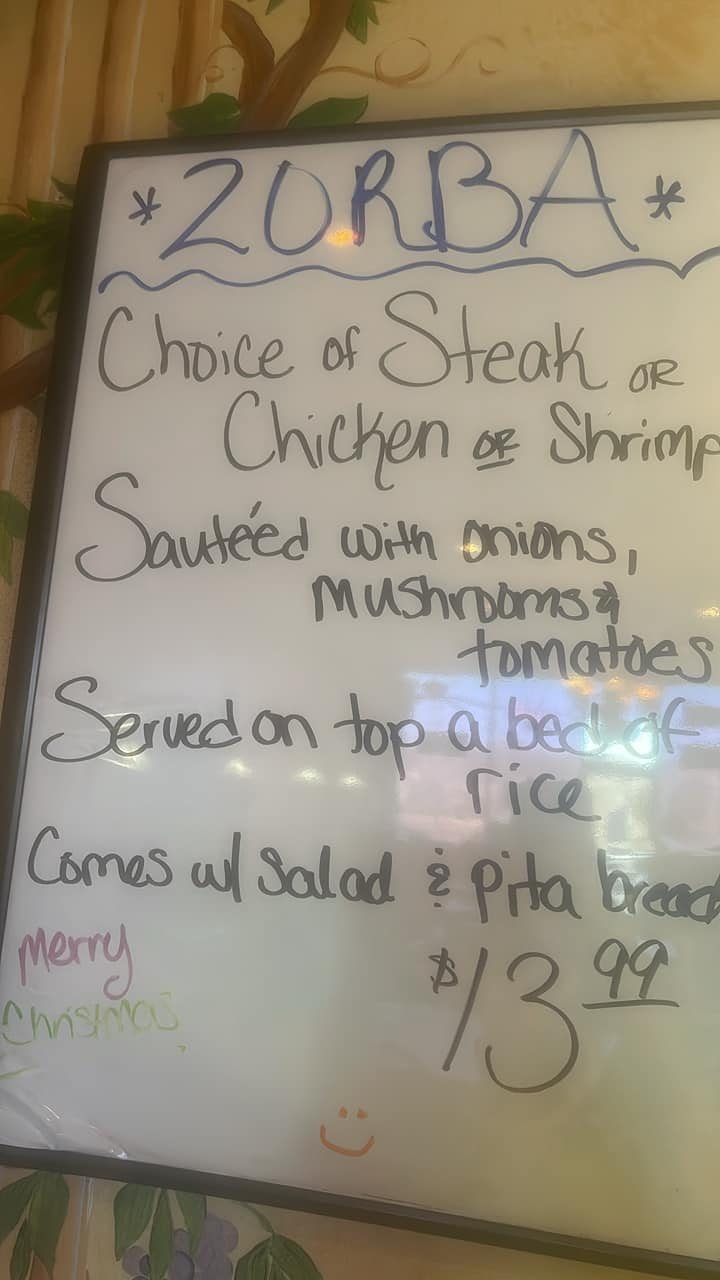 * ZORBA *
Choice of Steak OR
Chicken OR Shrimp
Sautéed with onions,
mushrooms &
tomatoes
Served on top a bed of
rice
Comes w/ Salad & pita bread
Merry
Christmas
$13.99